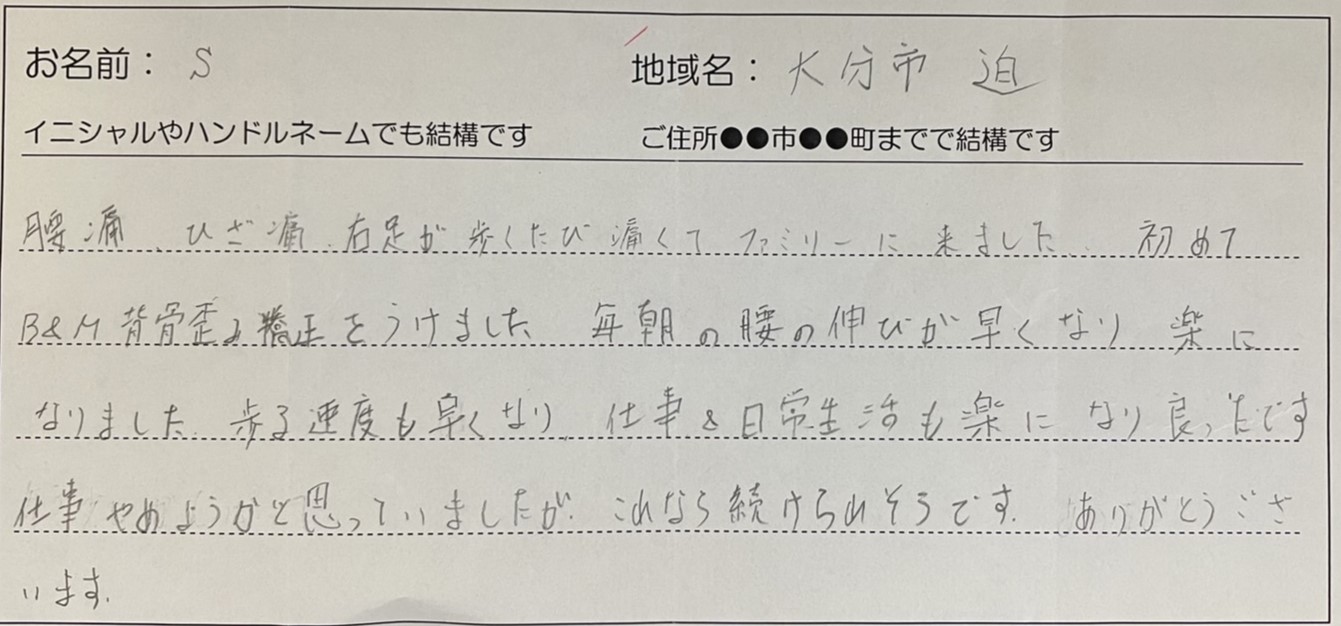 お名前： S 地域名： 大分市 迫
イニシャルやハンドルネームでも結構です ご住所●●市●●町までで結構です
腰痛、ひざ痛、右足が歩くたび痛くてファミリーに来ました。 初めて
B&M背骨歪み矯正をうけました 毎朝の腰の伸びが早くなり 楽に
なりました。歩る速度も早くなり、仕事&日常生活も楽に なり良ったです
仕事やめようかと思っていましたが、これなら続けられそうです。 ありがとうござ
います。